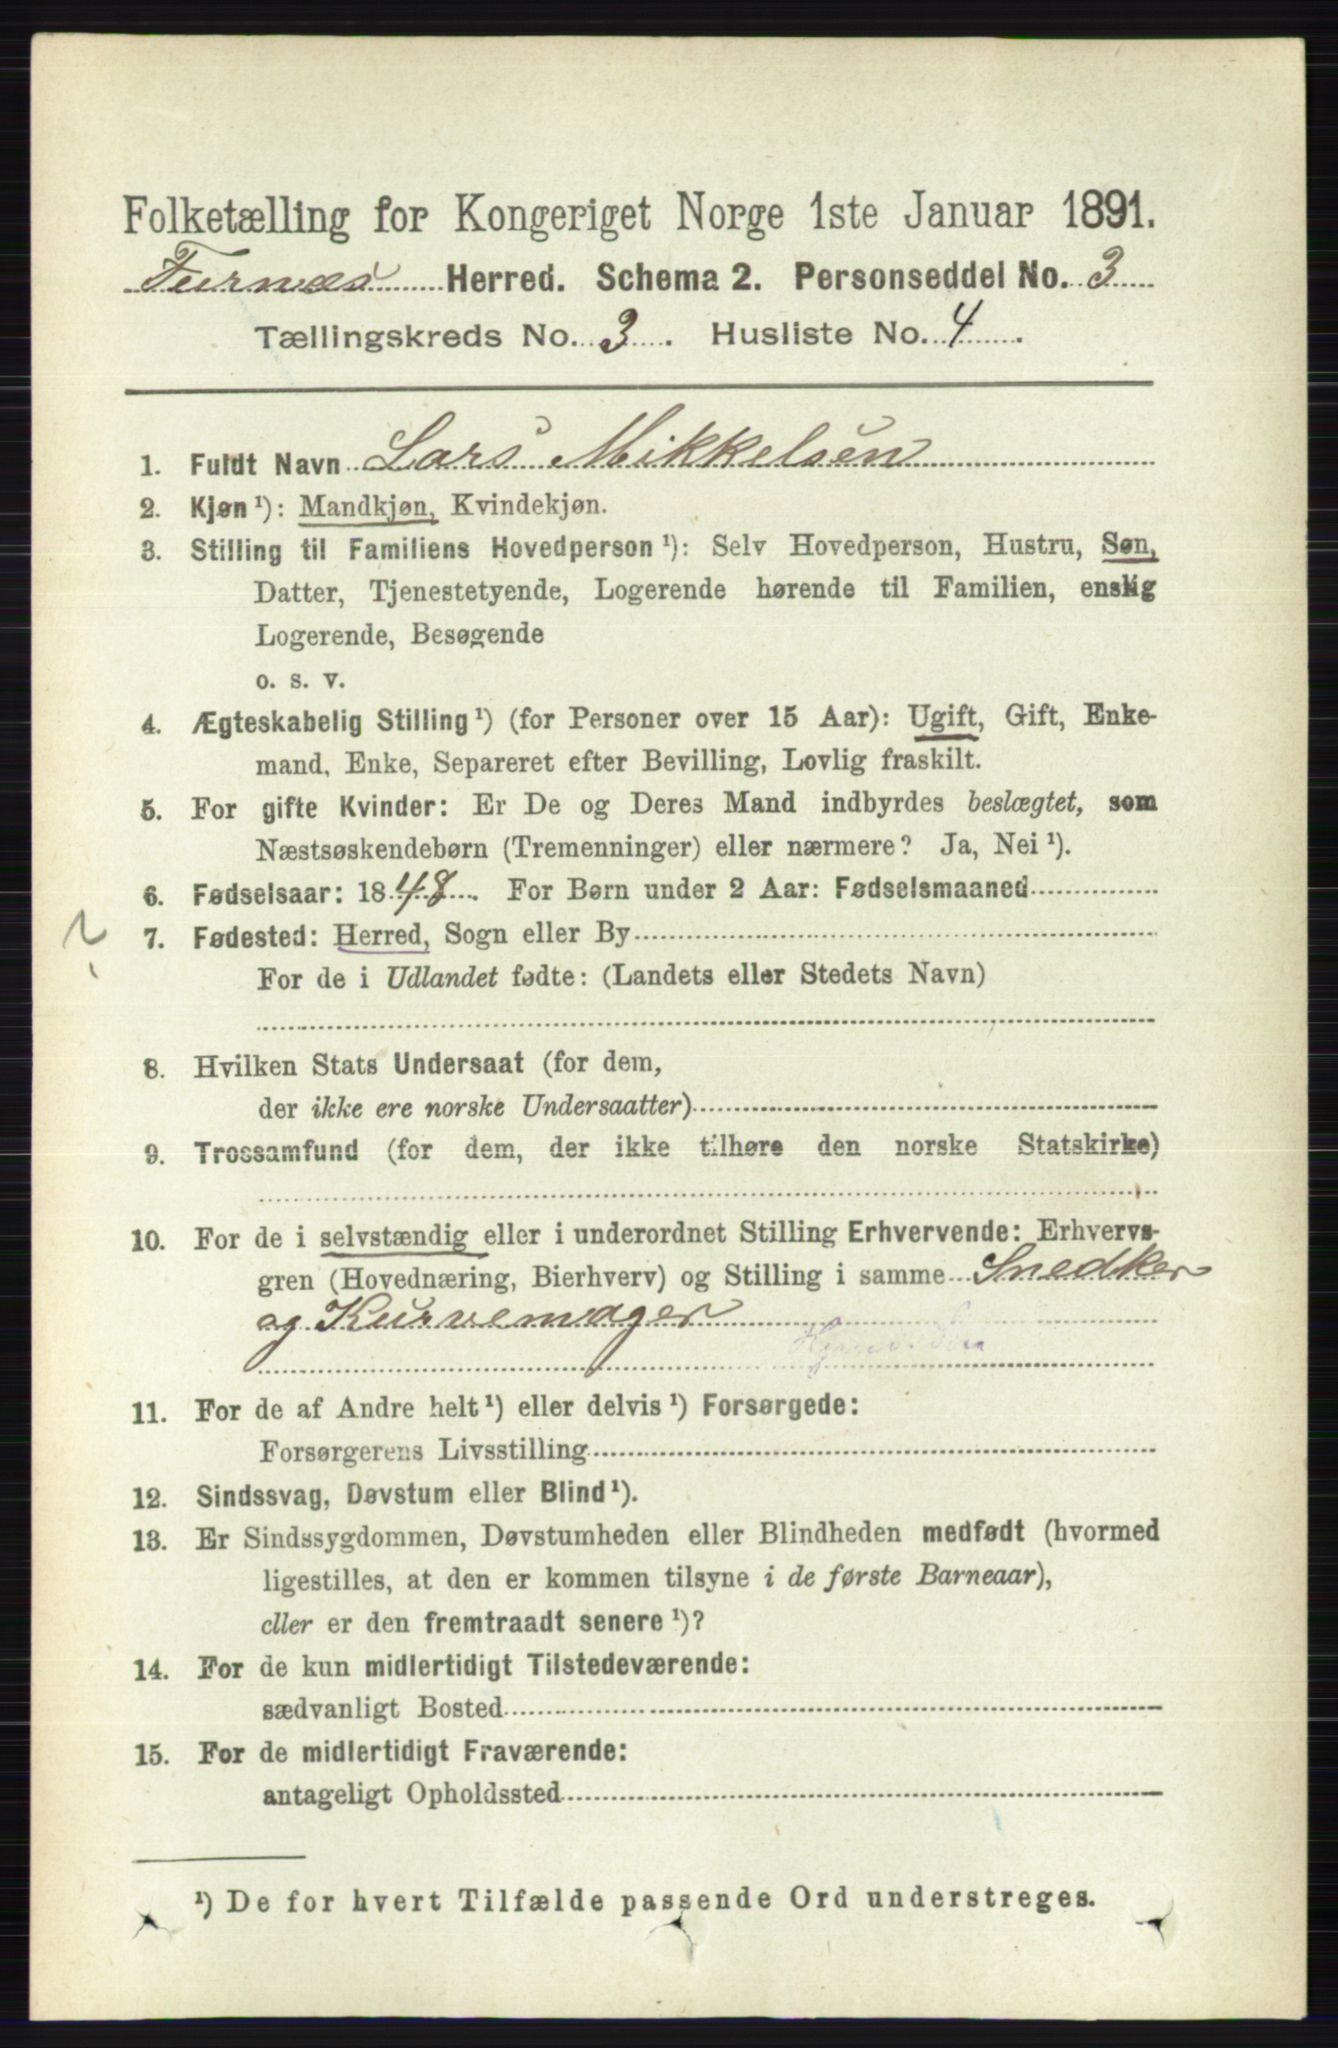 Folketælling for Kongeriget Norge 1ste Januar 1891.
Furnæs Herred. Schema 2. Personseddel No. 3
Tællingskreds No. 3. Husliste No. 4.
1. Fuldt Navn Lars Mikkelsen
2. Kjøn ¹): Mandkjøn, Kvindekjøn.
3. Stilling til Familiens Hovedperson ¹): Selv Hovedperson, Hustru, Søn,
Datter, Tjenestetyende, Logerende hørende til Familien, enslig
Logerende, Besøgende
o. s. v.
4. Ægteskabelig Stilling ¹) (for Personer over 15 Aar): Ugift, Gift, Enke-
mand, Enke, Separeret efter Bevilling, Lovlig fraskilt.
5. For gifte Kvinder: Er De og Deres Mand indbyrdes beslægtet, som
Næstsøskendebørn (Tremenninger) eller nærmere? Ja, Nei ¹).
6. Fødselsaar: 1848. For Børn under 2 Aar: Fødselsmaaned
7. Fødested: Herred, Sogn eller By
For de i Udlandet fødte: (Landets eller Stedets Navn)
8. Hvilken Stats Undersaat (for dem,
der ikke ere norske Undersaatter)
9. Trossamfund (for dem, der ikke tilhøre den norske Statskirke)
10. For de i selvstændig eller i underordnet Stilling Erhvervende: Erhvervs-
gren (Hovednæring, Bierhverv) og Stilling i samme Snedker
og Kurvemager
11. For de af Andre helt ¹) eller delvis ¹) Forsørgede:
Forsørgerens Livsstilling
12. Sindssvag, Døvstum eller Blind ¹).
13. Er Sindssygdommen, Døvstumheden eller Blindheden medfødt (hvormed
ligestilles, at den er kommen tilsyne i de første Barneaar),
eller er den fremtraadt senere ¹)?
14. For de kun midlertidigt Tilstedeværende:
sædvanligt Bosted
15. For de midlertidigt Fraværende:
antageligt Opholdssted
¹) De for hvert Tilfælde passende Ord understreges.